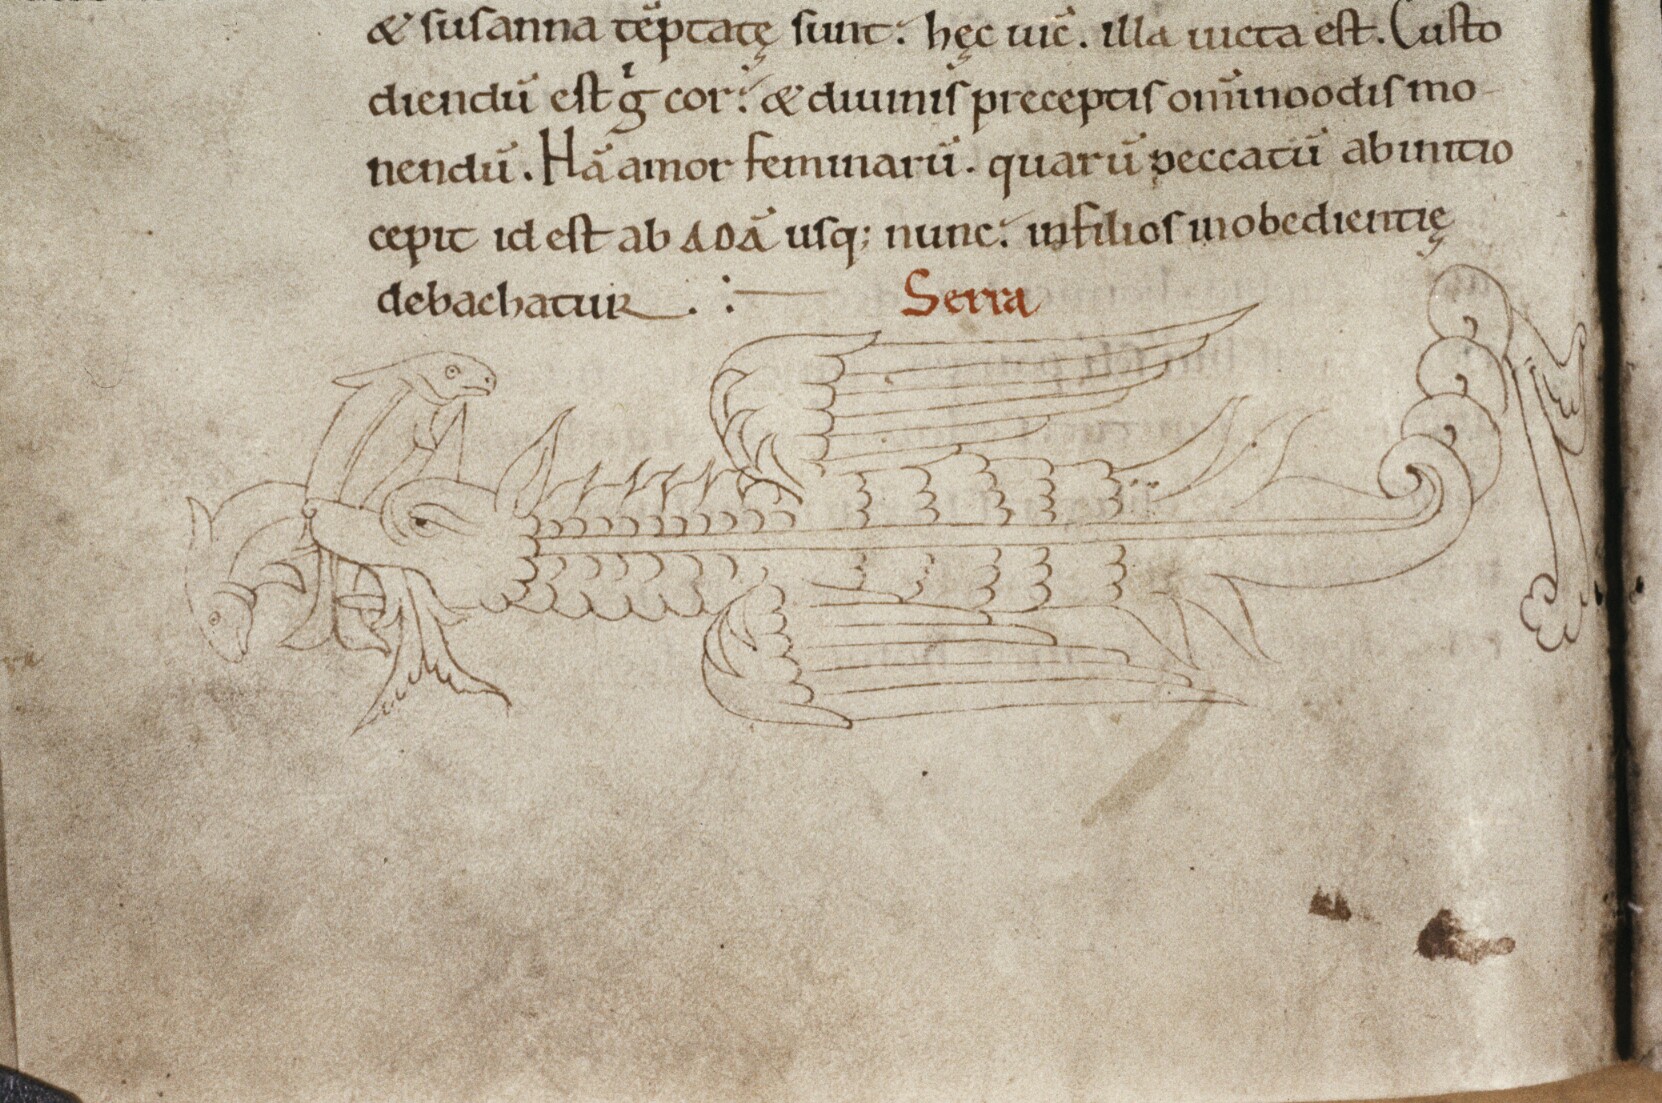 & susanna tēptatę sunt: hęc uic̄. illa uicta est. Custo
diendū est gͥ cor: & diuinis preceptis om̄inoodis mo-
nendū. Hā amor feminarū. quarū peccatū ab initio
cepit id est ab ADĀ usq; nunc: in filios inobedientię
debachatur . :— Serra